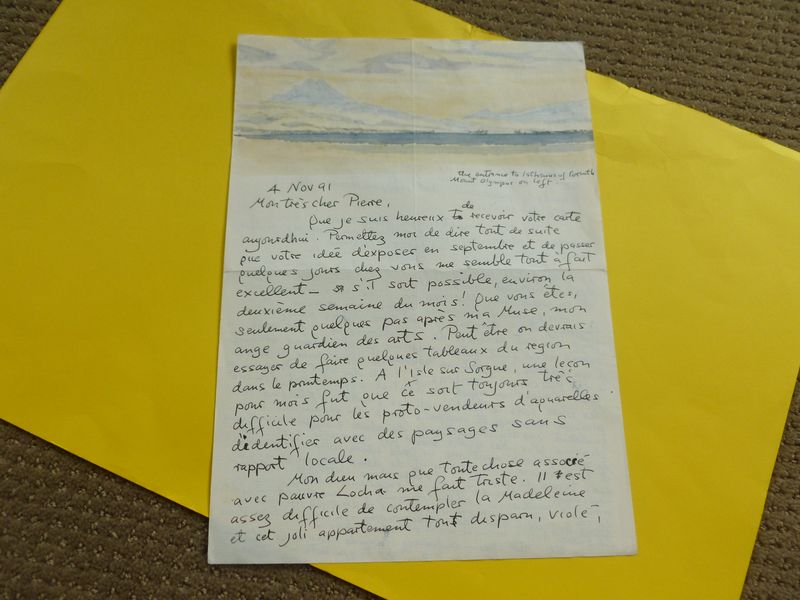 the entrance to Isthmus of Corinth
Mount Olympus on left
4 Nov 91
Mon très cher Pierre,
Que je suis heureux de recevoir votre carte
aujourdhui. Permettez moi de dire tout de suite
que votre idée d'exposer en septembre et de passer
quelques jours chez vous me semble tout à fait
excellent — s'il soit possible, environ la
deuxième semaine du mois! Que vous êtes,
seulement quelques pas après ma Muse, mon
ange guardien des arts. Peut être on devrais
essayer de faire quelques tableaux du region
dans le printemps. A l'Isle sur Sorgue, une leçon
pour mois fut que ce soit toujours très
difficile pour les proto-vendeurs d'aquarelles
d'identifier avec des paysages sans
rapport locale.
Mon dieu mais que toute chose associé
avec pauvre Locha me fait triste. Il est
assez difficile de contempler la Madeleine
et cet joli appartement tout disparu, violé,